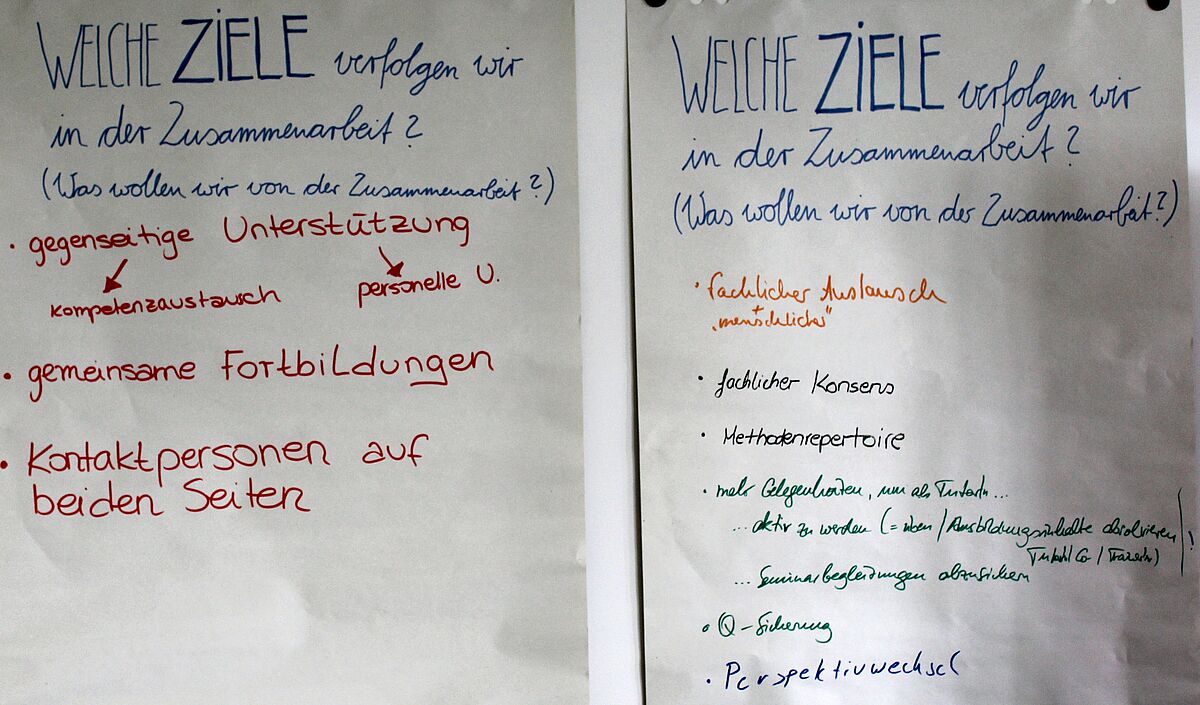 WELCHE ZIELE verfolgen wir
in der Zusammenarbeit?
(Was wollen wir von der Zusammenarbeit?)
• gegenseitige Unterstützung
kompetenzaustausch
personelle U.
• gemeinsame Fortbildungen
• Kontaktpersonen auf
beiden Seiten
WELCHE ZIELE verfolgen wir
in der Zusammenarbeit?
(Was wollen wir von der Zusammenarbeit?)
• fachlicher Austausch
+
"menschlicher"
• fachlicher Konsens
• Methodenrepertoire
• mehr Gelegenheiten, um als TutorIn...
... aktiv zu werden (= üben / Ausbildungsinhalte absolvieren
TutorIn/Co/TrainerIn)
!
... Seminarbegleitungen abzusichern
• Q-Sicherung
• Perspektivwechsel